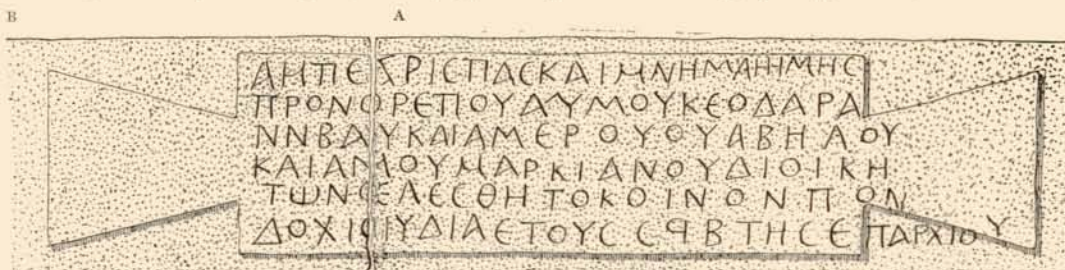 B A
ΑΗΠΕϹΡΙΕΠΔΕΚΑΙΜΝΗΜΑΗΙΜΗϹ
ΠΡΟΝΟΡΕΠΟΥΑΥΜΟΥΚΕΟΔΑΡΑ
ΝΝΒΑΥΚΑΙΑΜΕΡΟΥΘΥΑΒΗΛΟΥ
ΚΑΙΑΜΜΟΥΜΑΡΚΙΑΝΟΥΔΙΟΙΚΗ
ΤΩΝΕΛΕϹΘΗΤΟΚΟΙΝΟΝΠΟΝ
ΔΟΧΙΟΙΥΔΙΑΕΤΟΥϹϹϤΒΤΗϹΕΠΑΡΧΙΟΥ